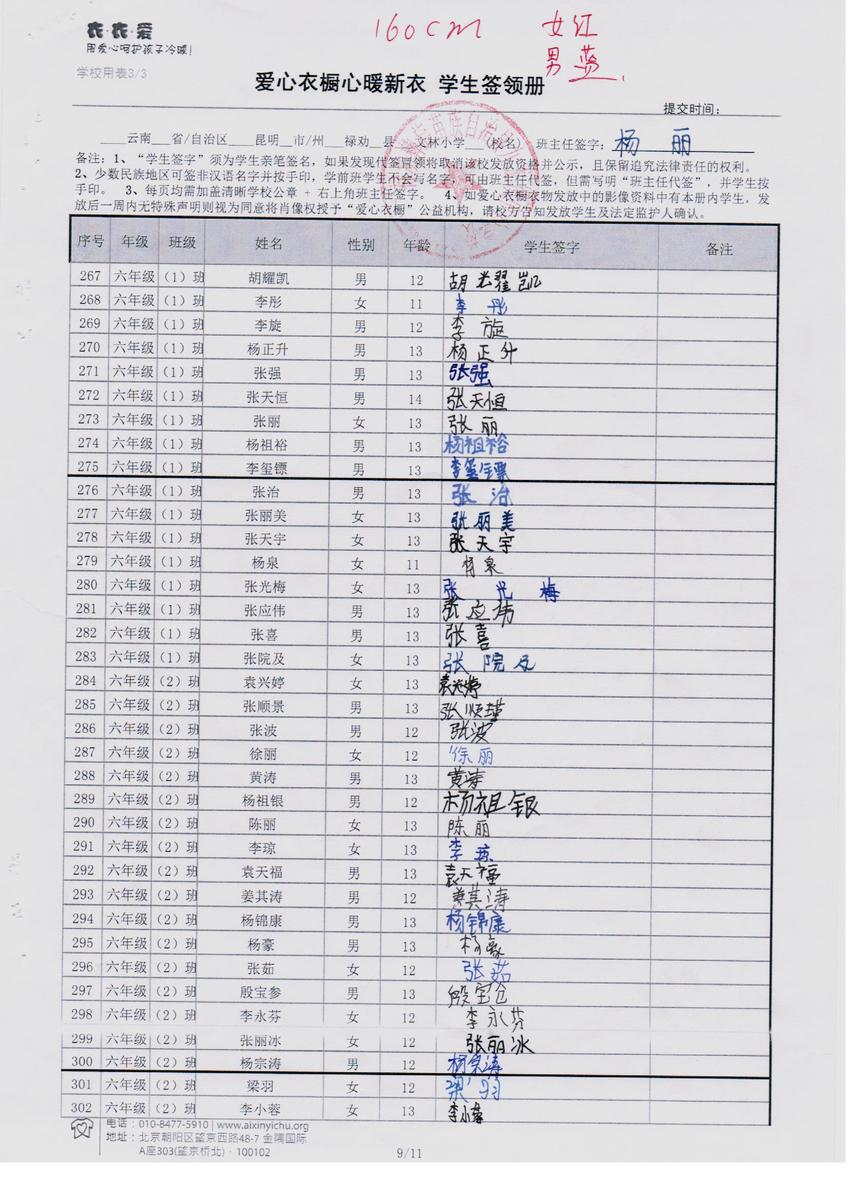 160cm 女红
男蓝.
衣·衣·爱
用爱心呵护孩子冷暖!
学校用表3/3
爱心衣橱心暖新衣 学生签领册
提交时间:
云南 省/自治区 昆明 市/州 禄劝 县 文林小学 (校名) 班主任签字: 杨丽
备注: 1、“学生签字”须为学生亲笔签名, 如果发现代签冒领将取消该校发放资格并公示, 且保留追究法律责任的权利。
2、少数民族地区可签非汉语名字并按手印, 学前班学生不会写名字, 可由班主任代签, 但需写明“班主任代签”, 并学生按
手印。 3、每页均需加盖清晰学校公章 + 右上角班主任签字。 4、如爱心衣橱衣物发放中的影像资料中有本册内学生, 发
放后一周内无特殊声明则视为同意将肖像权授予“爱心衣橱”公益机构, 请校方告知发放学生及法定监护人确认。
序号 年级 班级 姓名 性别 年龄 学生签字 备注
267 六年级 (1) 班 胡耀凯 男 12 胡耀凯
268 六年级 (1) 班 李彤 女 11 李彤
269 六年级 (1) 班 李旋 男 12 李旋
270 六年级 (1) 班 杨正升 男 13 杨正升
271 六年级 (1) 班 张强 男 13 张强
272 六年级 (1) 班 张天恒 男 14 张天恒
273 六年级 (1) 班 张丽 女 13 张丽
274 六年级 (1) 班 杨祖裕 男 13 杨祖裕
275 六年级 (1) 班 李玺镖 男 13 李玺镖
276 六年级 (1) 班 张治 男 13 张治
277 六年级 (1) 班 张丽美 女 13 张丽美
278 六年级 (1) 班 张天宇 女 13 张天宇
279 六年级 (1) 班 杨泉 女 11 杨泉
280 六年级 (1) 班 张光梅 女 13 张光梅
281 六年级 (1) 班 张应伟 男 13 张应伟
282 六年级 (1) 班 张喜 男 13 张喜
283 六年级 (1) 班 张院及 女 13 张院及
284 六年级 (2) 班 袁兴婷 女 13 袁兴婷
285 六年级 (2) 班 张顺景 男 13 张顺
286 六年级 (2) 班 张波 男 12 张波
287 六年级 (2) 班 徐丽 女 12 徐丽
288 六年级 (2) 班 黄涛 男 13 黄涛
289 六年级 (2) 班 杨祖银 男 12 杨祖银
290 六年级 (2) 班 陈丽 女 13 陈丽
291 六年级 (2) 班 李琼 女 13 李琼
292 六年级 (2) 班 袁天福 男 13 袁天福
293 六年级 (2) 班 姜其涛 男 12 姜其涛
294 六年级 (2) 班 杨锦康 男 13 杨锦康
295 六年级 (2) 班 杨豪 男 13 杨豪
296 六年级 (2) 班 张茹 女 12 张茹
297 六年级 (2) 班 殷宝参 男 13 殷宝
298 六年级 (2) 班 李永芬 女 12 李永芬
299 六年级 (2) 班 张丽冰 女 12 张丽冰
300 六年级 (2) 班 杨宗涛 男 12 杨宗涛
301 六年级 (2) 班 梁羽 女 12 梁羽
302 六年级 (2) 班 李小蓉 女 13 李小蓉
电话: 010-8477-5910 | www.aixinyichu.org
地址: 北京朝阳区望京西路48-7 金隅国际
A座303(望京桥北) · 100102
9/11